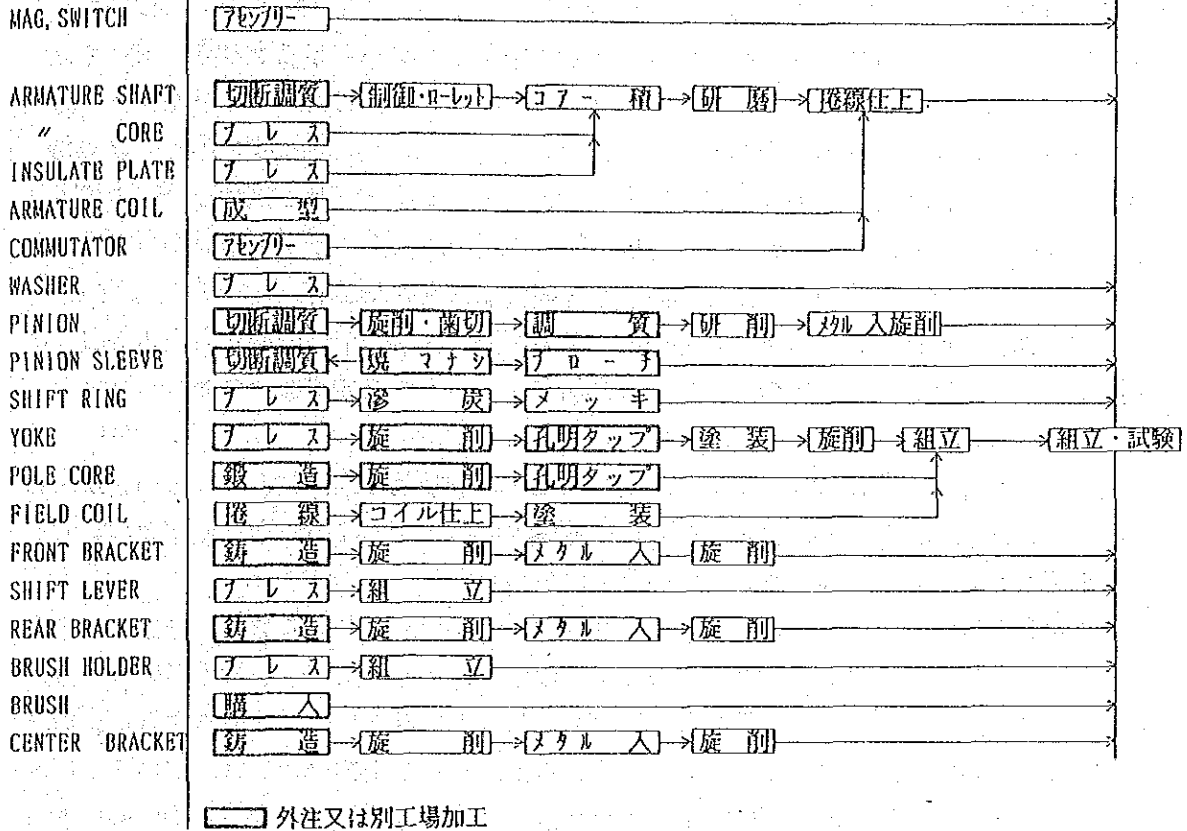 MAG, SWITCH アセンブリー
ARMATURE SHAFT 切断調質 制御・ローレット コアー積 研磨 捲線仕上
〃 CORE プレス
INSULATE PLATE プレス
ARMATURE COIL 成型
COMMUTATOR アセンブリー
WASHER プレス
PINION 切断調質 旋削・歯切 調質 研削 メタル入旋削
PINION SLEEVE 切断調質 焼マナシ ブローチ
SHIFT RING プレス 滲炭 メッキ
YOKE プレス 旋削 孔明タップ 塗装 旋削 組立 組立・試験
POLE CORE 鍛造 旋削 孔明タップ
FIELD COIL 捲線 コイル仕上 塗装
FRONT BRACKET 鋳造 旋削 メタル入 旋削
SHIFT LEVER プレス 組立
REAR BRACKET 鋳造 旋削 メタル入 旋削
BRUSH HOLDER プレス 組立
BRUSH 購入
CENTER BRACKET 鋳造 旋削 メタル入 旋削
外注又は別工場加工